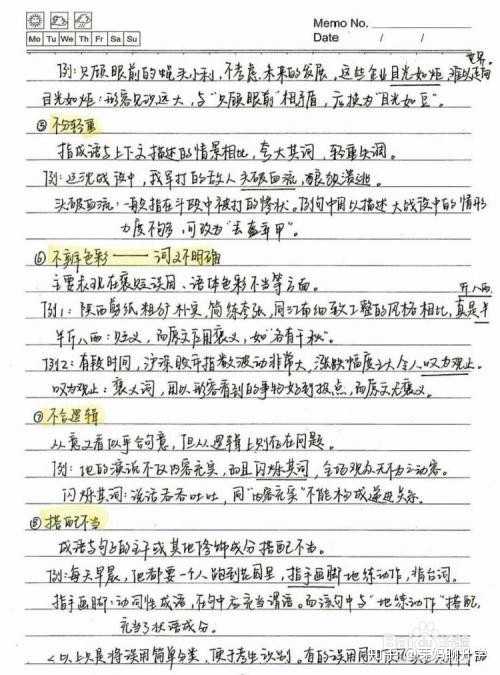 Memo No.
Mo Tu We Th Fr Sa Su
Date / /
例:只顾眼前的蝇头小利,不考虑未来的发展,这些企业目光如炬难以走向世界。
目光如炬:形容见识远大,与"只顾眼前"相矛盾,应换为"目光如豆"。
⑤ 不分轻重
指成语与上下文描述的情景相比,夸大其词,轻重失调。
例:这次战役中,我军打的敌人头破血流,狼狈溃逃。
头破血流:一般指在斗殴中被打的惨状。例句中用以描述大战役中的情形
力度不够,可改为"丢盔弃甲"。
⑥ 不辨色彩——词义不明确
主要表现在褒贬误用、语体色彩不当等方面。
例1:陕西剪纸粗犷朴实,简练夸张,同江南细致工整的风格相比,真是半斤八两。
半斤八两:贬义,而原文应用褒义,如"各有千秋"。
例2:有段时间,沪深股市指数波动非常大,涨跌幅度之大令人叹为观止。
叹为观止:褒义词,用以形容看到的事物好到极点,而原文无褒义。
⑦ 不合逻辑
从意义看似乎合句意,但从逻辑上则存在问题。
例:他的演说不仅内容充实,而且闪烁其词,全场观众无不为之动容。
闪烁其词:说话吞吞吐吐,同"内容充实"不能构成递进关系。
⑧ 搭配不当
成语与句子的主干或其他修饰成分搭配不当。
例:每天早晨,他都要一个人跑到花园里,指手画脚地练动作,背台词。
指手画脚:动词性成语,在句中应充当谓语。而该句中与"地练动作"搭配,
充当了状语成分。
<以上只是将误用简单分类,便于考生识别。有的误用同时